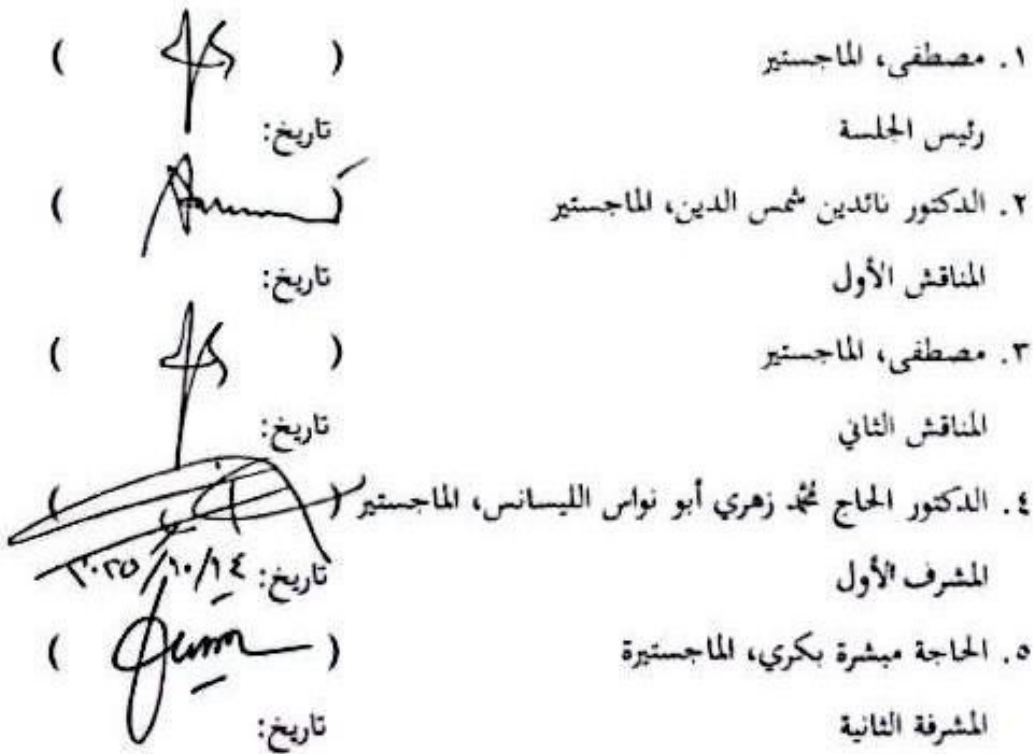 ١. مصطفى، الماجستير ( )
رئيس الجلسة تاريخ:
٢. الدكتور نائدين شمس الدين، الماجستير ( )
المناقش الأول تاريخ:
٣. مصطفى، الماجستير ( )
المناقش الثاني تاريخ:
٤. الدكتور الحاج محمد زهري أبو نواس الليسانس، الماجستير ( )
المشرف الأول تاريخ: ١٤/١٠/٢٠٢٥
٥. الحاجة مبشرة بكري، الماجستيرة ( )
المشرفة الثانية تاريخ: